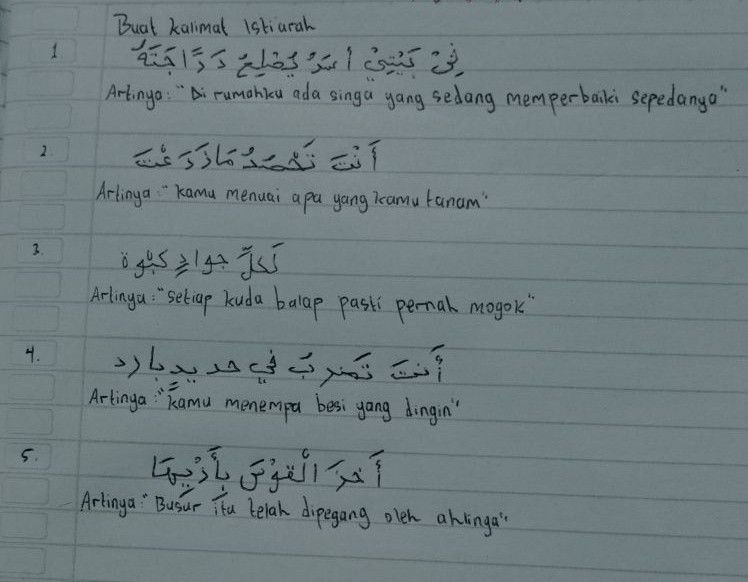 Buat kalimat Istiarah
1 فِيْ بَيْتِيْ أَسَدٌ يُصْلِحُ دَرَّاجَتَهُ
Artinya: "Di rumahku ada singa yang sedang memperbaiki sepedanya"
2. أَنْتَ تَحْصُدُ مَا زَرَعْتَ
Artinya: "Kamu menuai apa yang kamu tanam"
3. لَكلِّ جوادٍ كبْوة
Artinya: "Setiap kuda balap pasti pernah mogok"
4. أَنتَ تَضرِبُ في حديد بارد
Artinya: "Kamu menempa besi yang dingin"
5. أَخذَ الْقَوْسَ
Artinya: "Busur itu telah dipegang oleh ahlinya"